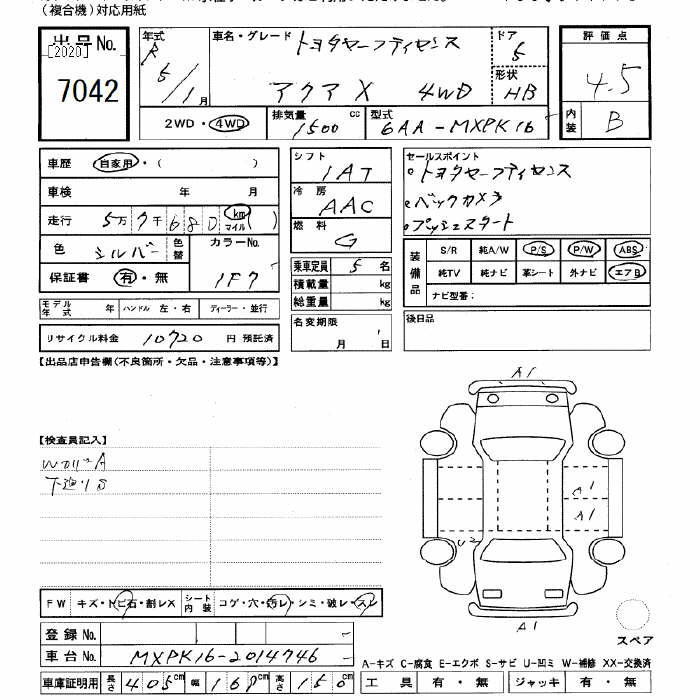 (複合機)対応用紙
出品No.
[2020]
7042
年式 R5/1月
車名・グレード トヨタセーフティセンス
アクア X 4WD
ドア 5
形状 HB
2WD・4WD
排気量 1500 cc
型式 6AA-MXPK16
評価点
4.5
内装 B
車歴 自家用・( )
車検 年 月
走行 5万7千680 km マイル ( )
色 シルバー 色替
カラーNo. 1F7
保証書 有・無
モデル年式 年 ハンドル 左・右 ディーラー・並行
リサイクル料金 10720 円 預託済
シフト IAT
冷房 AAC
燃料 G
乗車定員 5 名
積載量 kg
総重量 kg
名変期限
月 日
セールスポイント
・トヨタセーフティセンス
・バックカメラ
・プッシュスタート
装備品
S/R 純A/W P/S P/W ABS
純TV 純ナビ 革シート 外ナビ エアB
ナビ型番:
後日品
【出品店申告欄(不良箇所・欠品・注意事項等)】
【検査員記入】
A
下廻りS
A1
A1
A1
U2
A1
スペア
FW キズ・トビ石・割レX シート内装 コゲ・穴・汚レ・シミ・破レ・スレ
登録No.
車台No. MXPK16-2014746
車庫証明用 長さ 405cm 幅 169cm 高さ 150cm
A-キズ C-腐食 E-エクボ S-サビ U-凹ミ W-補修 XX-交換済
工具 有・無 ジャッキ 有・無